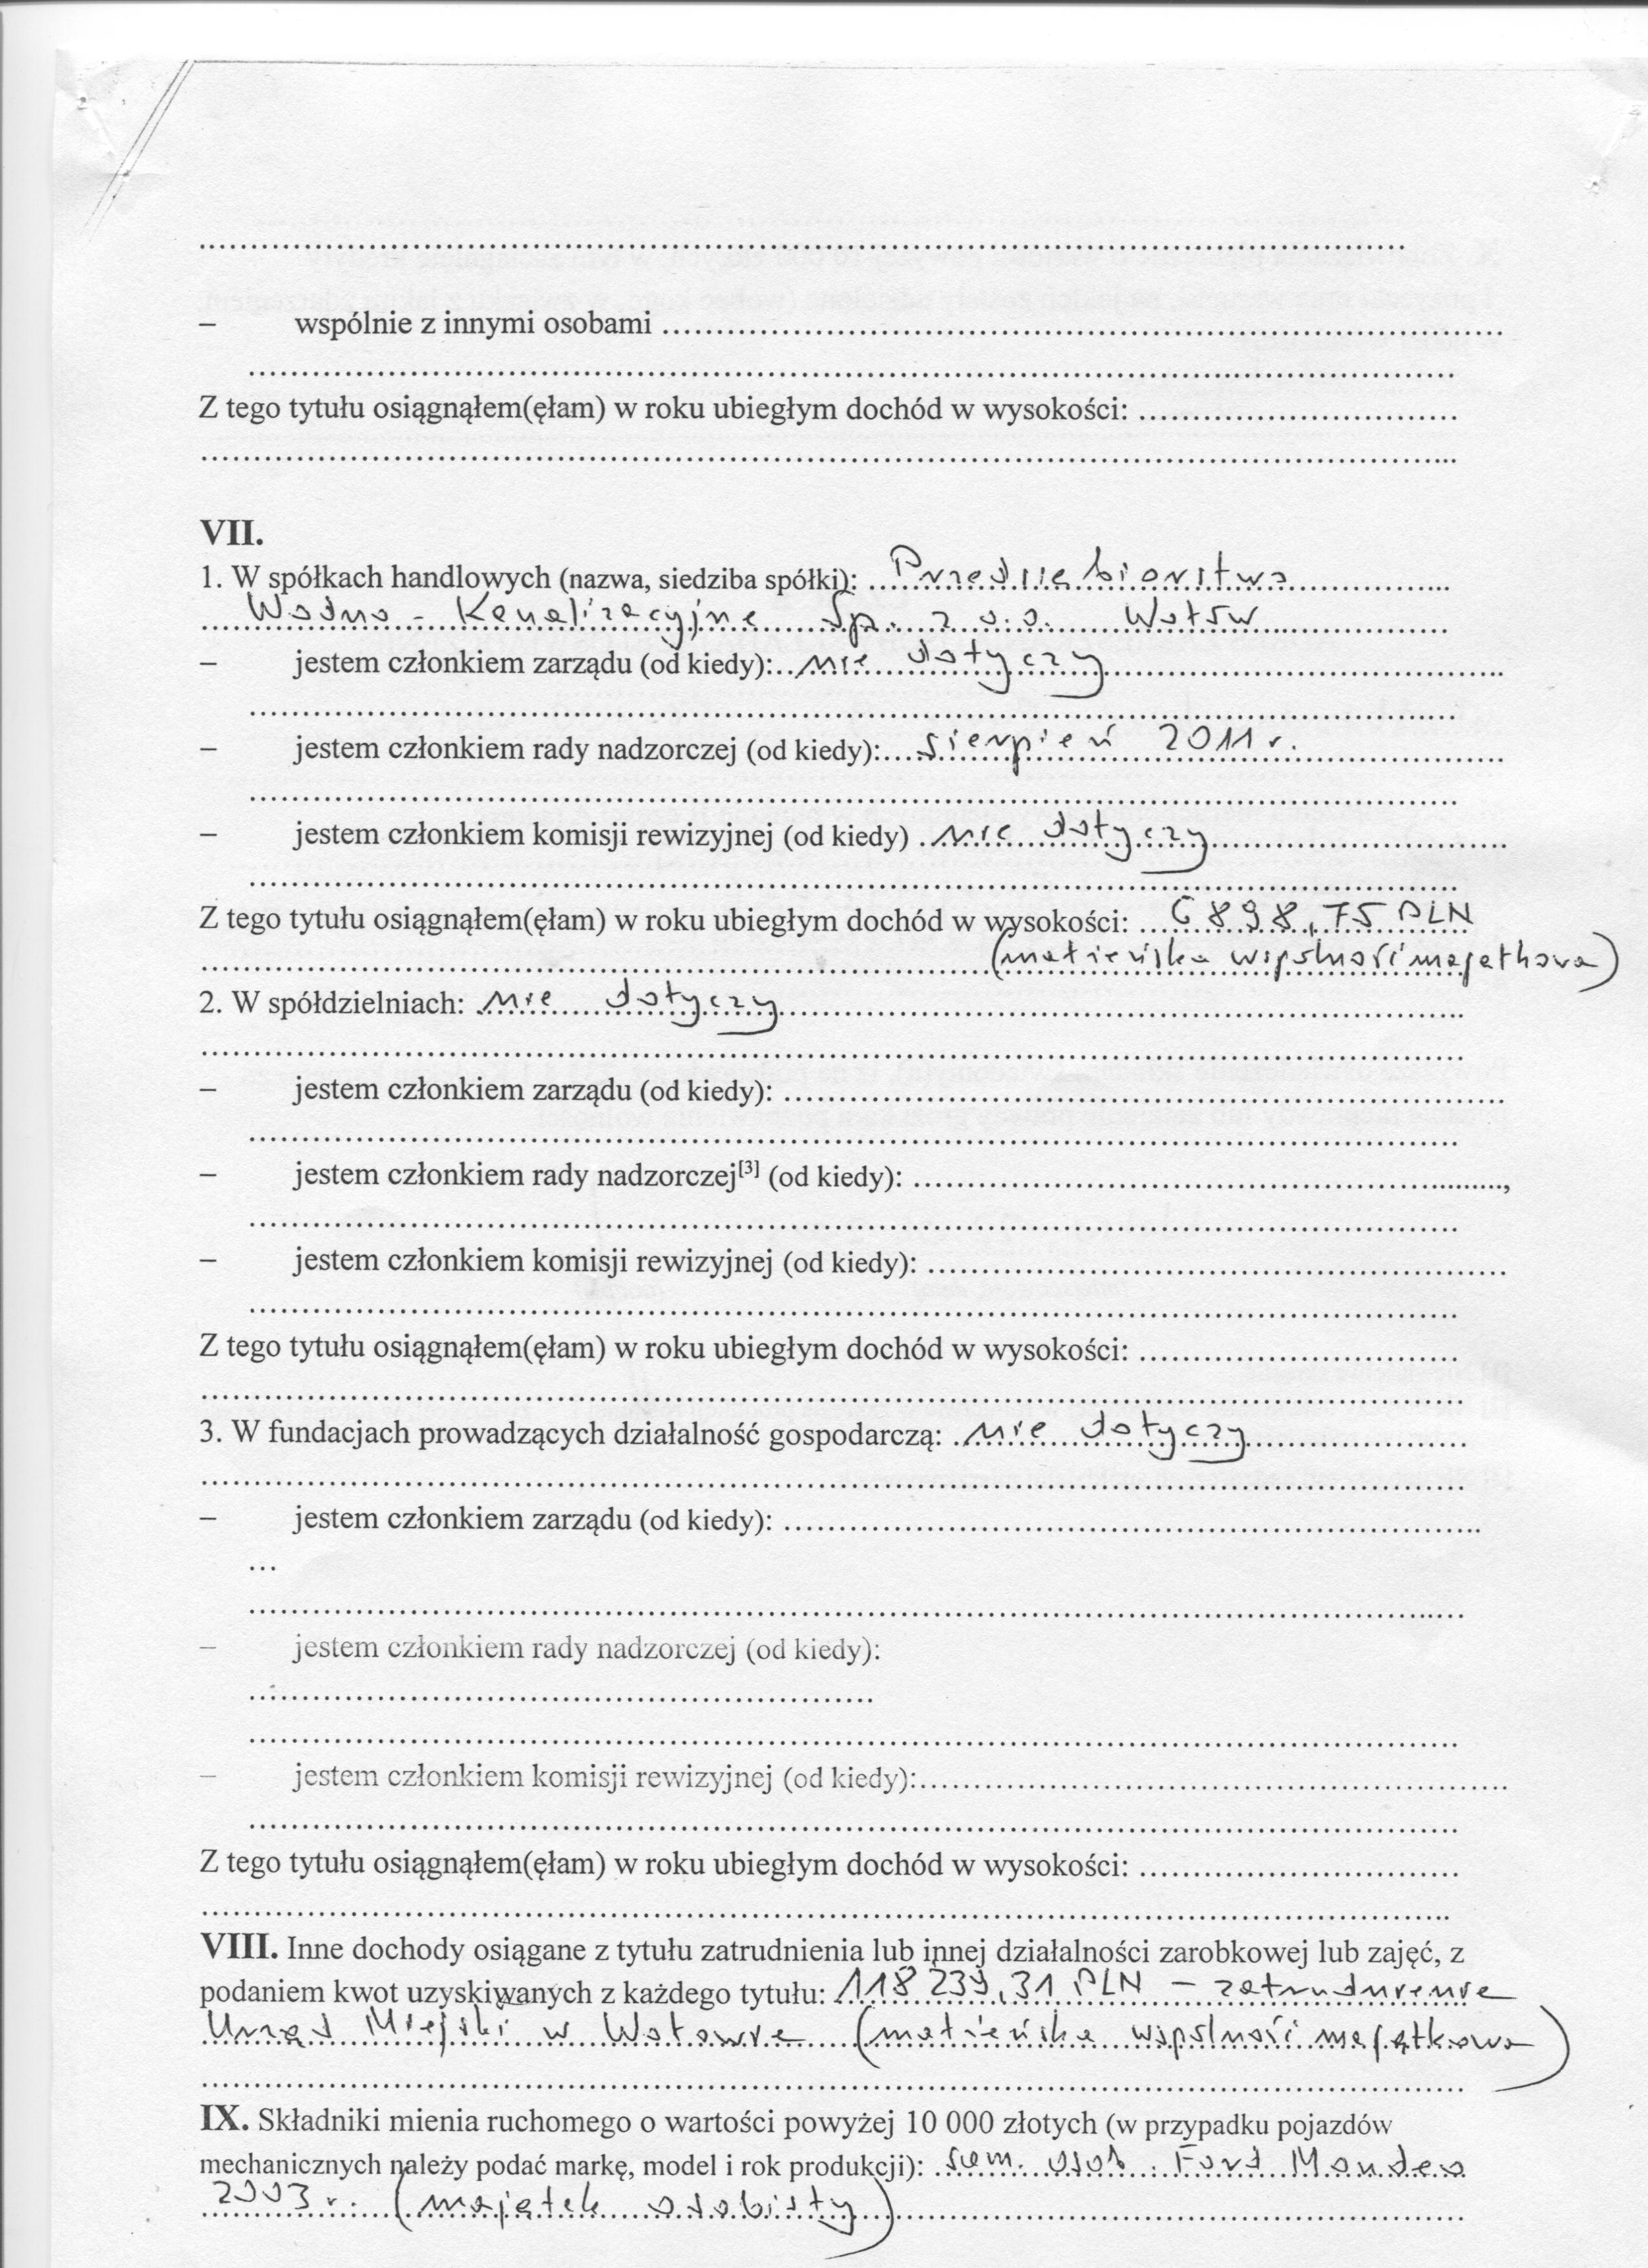 – wspólnie z innymi osobami
Z tego tytułu osiągnąłem(ęłam) w roku ubiegłym dochód w wysokości:
VII.
1. W spółkach handlowych (nazwa, siedziba spółki): Przedsiębiorstwo
Wodno - Kanalizacyjne Sp. z o.o. Wołów
– jestem członkiem zarządu (od kiedy): nie dotyczy
– jestem członkiem rady nadzorczej (od kiedy): sierpień 2011 r.
– jestem członkiem komisji rewizyjnej (od kiedy) nie dotyczy
Z tego tytułu osiągnąłem(ęłam) w roku ubiegłym dochód w wysokości: 6898,75 PLN
(małżeńska wspólność majątkowa)
2. W spółdzielniach: nie dotyczy
– jestem członkiem zarządu (od kiedy):
– jestem członkiem rady nadzorczej[3] (od kiedy): ,
– jestem członkiem komisji rewizyjnej (od kiedy):
Z tego tytułu osiągnąłem(ęłam) w roku ubiegłym dochód w wysokości:
3. W fundacjach prowadzących działalność gospodarczą: nie dotyczy
– jestem członkiem zarządu (od kiedy):
...
– jestem członkiem rady nadzorczej (od kiedy):
– jestem członkiem komisji rewizyjnej (od kiedy):
Z tego tytułu osiągnąłem(ęłam) w roku ubiegłym dochód w wysokości:
VIII. Inne dochody osiągane z tytułu zatrudnienia lub innej działalności zarobkowej lub zajęć, z
podaniem kwot uzyskiwanych z każdego tytułu: 118 239,31 PLN – zatrudnienie
Urząd Miejski w Wołowie (małżeńska wspólność majątkowa)
IX. Składniki mienia ruchomego o wartości powyżej 10 000 złotych (w przypadku pojazdów
mechanicznych należy podać markę, model i rok produkcji): sam. osob. Ford Mondeo
2003 r. (majątek osobisty)